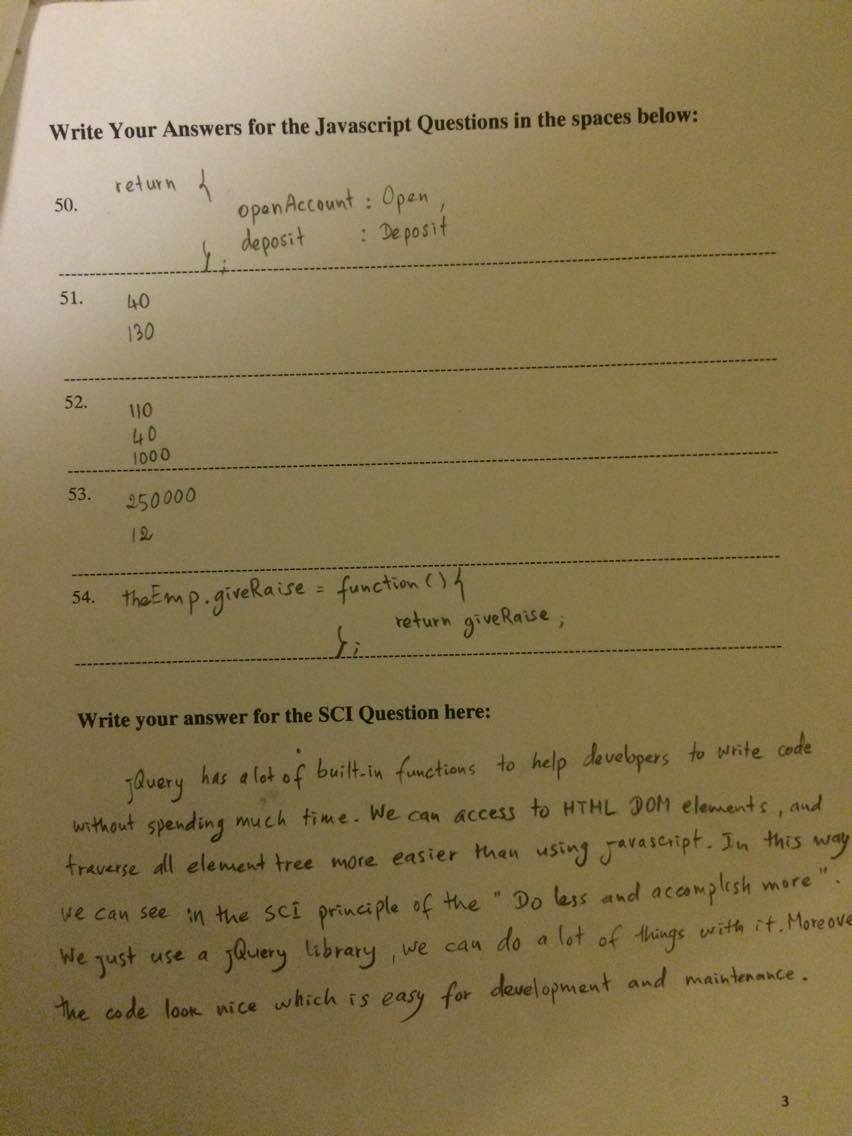 Write Your Answers for the Javascript Questions in the spaces below:
50. return {
openAccount : Open,
deposit : Deposit
};
51. 40
130
52. 110
40
1000
53. 250000
12
54. theEmp.giveRaise = function() {
return giveRaise;
};
Write your answer for the SCI Question here:
jQuery has a lot of built-in functions to help developers to write code
without spending much time. We can access to HTML DOM elements, and
traverse all element tree more easier than using javascript. In this way
we can see in the SCI principle of the "Do less and accomplish more".
We just use a jQuery library, we can do a lot of things with it. Moreove
the code look nice which is easy for development and maintenance.
3